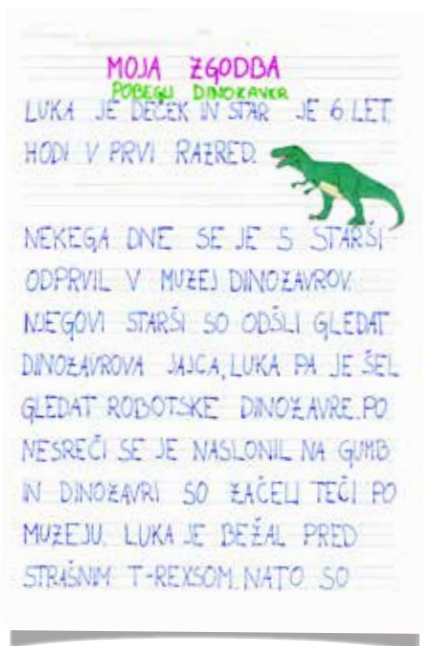 MOJA ZGODBA
POBEGLI DINOZAVER
LUKA JE DEČEK IN STAR JE 6 LET.
HODI V PRVI RAZRED.
NEKEGA DNE SE JE S STARŠI
ODPRVIL V MUZEJ DINOZAVROV.
NJEGOVI STARŠI SO ODŠLI GLEDAT
DINOZAVROVA JAJCA, LUKA PA JE ŠEL
GLEDAT ROBOTSKE DINOZAVRE. PO
NESREČI SE JE NASLONIL NA GUMB
IN DINOZAVRI SO ZAČELI TEČI PO
MUZEJU. LUKA JE BEŽAL PRED
STRAŠNIM T-REXSOM. NATO SO